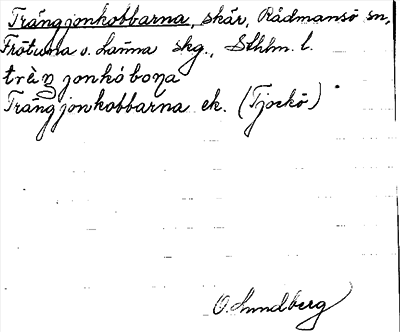 Trångjonkobbarna, skär, Rådmansö sn,
Frötuna o. Länna skg., Sthlm. l.
trèŋjonkóboṇa
Trångjonkobbarna ek. (Tjockö)
O. Lundberg